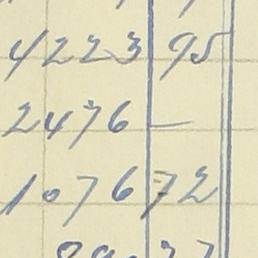 4223 95
2476 —
1076 72